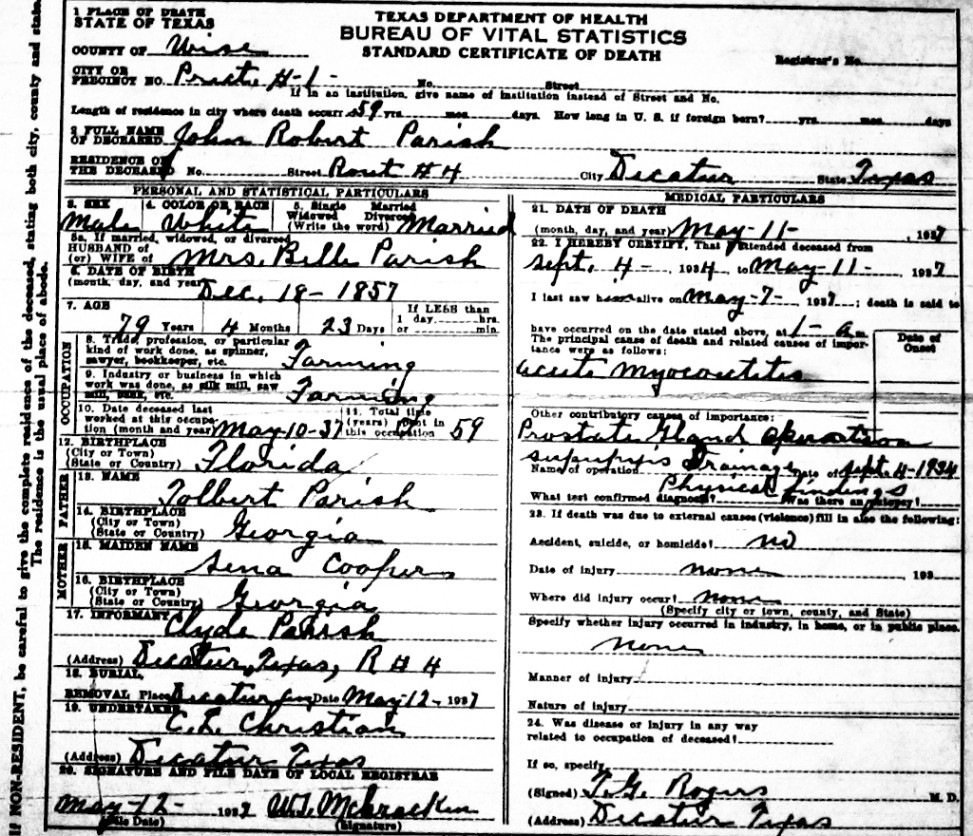 If NON-RESIDENT, be careful to give the complete residence of the deceased, stating both city, county and state.
The residence is the usual place of abode.
TEXAS DEPARTMENT OF HEALTH
BUREAU OF VITAL STATISTICS
STANDARD CERTIFICATE OF DEATH
1 PLACE OF DEATH
STATE OF TEXAS
COUNTY OF Wise
Registrar's No.
CITY OR
PRECINCT NO. #-1- No. Street
If in an institution, give name of institution instead of Street and No.
Length of residence in city where death occurr 59 yrs. mos. days. How long in U. S. if foreign born? yrs. mos. days
2 FULL NAME
OF DECEASED John Robert Parish
RESIDENCE OF
THE DECEASED No. Street Rout #4 City Decatur State Texas
PERSONAL AND STATISTICAL PARTICULARS
3. SEX 4. COLOR OR RACE 5. Single Married
Widowed Divorced
(Write the word)
Male White Married
5a. If married, widowed, or divorced
HUSBAND of
(or) WIFE of Mrs. Belle Parish
6. DATE OF BIRTH
(month, day, and year Dec. 18- 1857
7. AGE If LESS than
1 day hrs.
or min.
79 Years 4 Months 23 Days
OCCUPATION
8. Trade, profession, or particular
kind of work done, as spinner,
sawyer, bookkeeper, etc. Farming
9. Industry or business in which
work was done, as silk mill, saw
mill, bank, etc. Farming
10. Date deceased last
worked at this occupa-
tion (month and year) May-10-37
11. Total time
(years) spent in
this occupation 59
12. BIRTHPLACE
(City or Town)
(State or Country) Florida
FATHER
13. NAME
Tolbert Parish
14. BIRTHPLACE
(City or Town)
(State or Country) Georgia
MOTHER
15. MAIDEN NAME
Sena Cooper
16. BIRTHPLACE
(City or Town)
(State or Country) Georgia
17. INFORMANT
Clyde Parish
(Address) Decatur, Texas, R #4
18. BURIAL,
REMOVAL Place Decatur Date May-12- 1937
19. UNDERTAKER
C. L. Christian
(Address) Decatur Texas
20. SIGNATURE AND FILE DATE OF LOCAL REGISTRAR
May-12- 1937 W.T. McCracken
(File Date) (Signature)
MEDICAL PARTICULARS
21. DATE OF DEATH
(month, day, and year) May-11- , 1937
22. I HEREBY CERTIFY, That I attended deceased from
Sept. 4- 1934 to May-11- 1937
I last saw alive on May-7- 1937; death is said to
have occurred on the date stated above, at 1- a m.
The principal cause of death and related causes of impor-
tance were as follows:
Date of
Onset
acute
Other contributory causes of importance:
Prostate Gland operation
Drainage
Name of operation Date of Sept. 4-1934
Physical findings
What test confirmed diagnosis? Was there an autopsy?
23. If death was due to external causes (violence) fill in also the following:
Accident, suicide, or homicide? no
Date of injury none , 193
Where did injury occur? none
(Specify city or town, county, and State)
Specify whether injury occurred in industry, in home, or in public place.
none
Manner of injury
Nature of injury
24. Was disease or injury in any way
related to occupation of deceased?
If so, specify
(Signed) T. G. Rogers M. D.
(Address) Decatur Texas